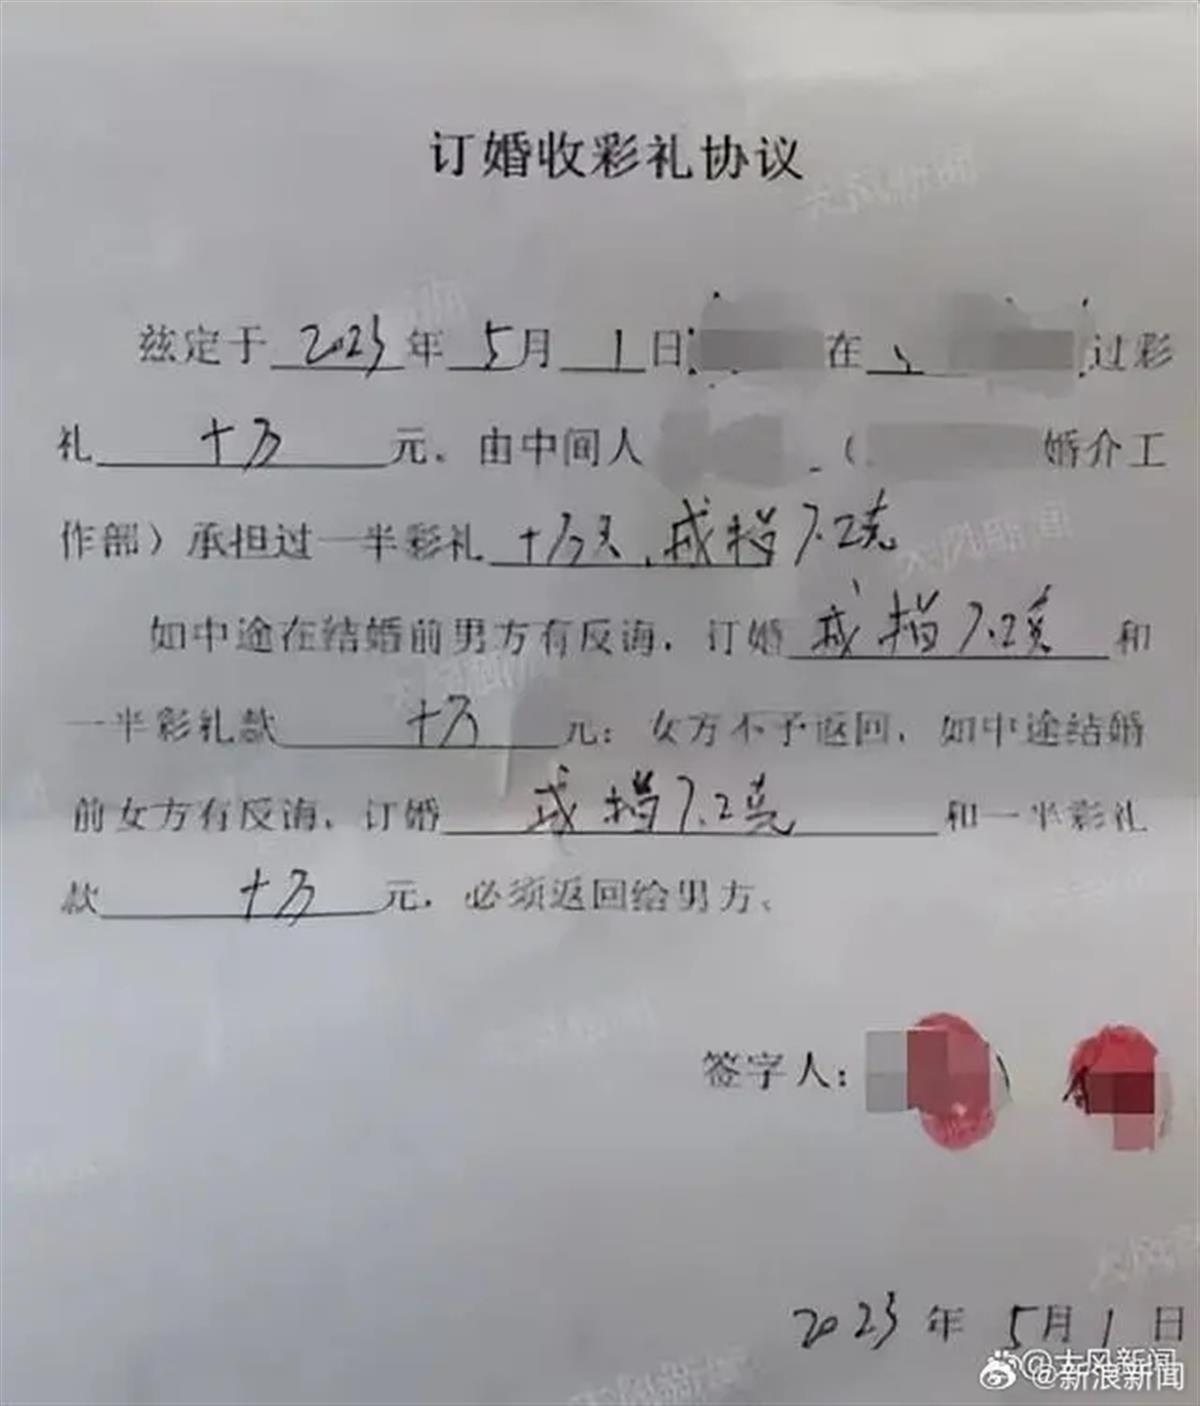 订婚收彩礼协议
兹定于2023年5月1日 在 过彩
礼十万元。由中间人 ( 婚介工
作部）承担过一半彩礼十万元，戒指7.2克
如中途在结婚前男方有反悔，订婚戒指7.2克和
一半彩礼款十万元；女方不予返回，如中途结婚
前女方有反悔，订婚戒指7.2克和一半彩礼
款十万元，必须返回给男方。
签字人：
2023年5月1日
@大风新闻
@新浪新闻